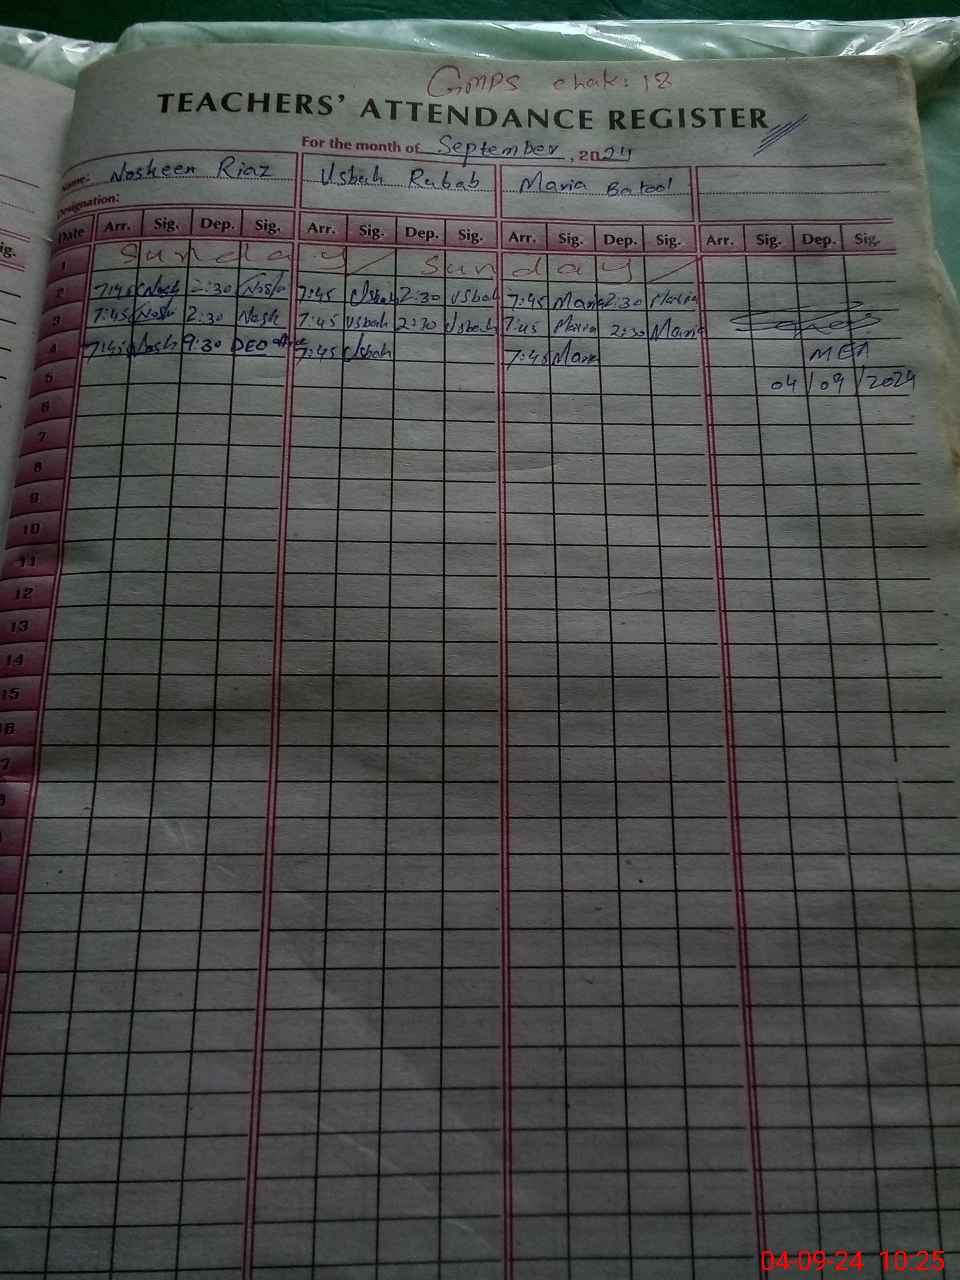 GMPS chak: 18
TEACHERS' ATTENDANCE REGISTER
For the month of September, 2024
Name: Nosheen Riaz Usbah Rubab Maria Batool
Designation:
Date Arr. Sig. Dep. Sig. Arr. Sig. Dep. Sig. Arr. Sig. Dep. Sig. Arr. Sig. Dep. Sig.
1 Sunday Sunday
2 7:45 Nosh 2:30 Nosh 7:45 Usbah 2:30 Usbah 7:45 Maria 2:30 Maria
3 7:45 Nosh 2:30 Nosh 7:45 Usbah 2:30 Usbah 7:45 Maria 2:30 Maria
4 7:45 Nosh 9:30 DEO office 7:45 Usbah 7:45 Maria MEA
5 04/09/2024
6
7
8
9
10
11
12
13
14
15
16
7
04-09-24 10:25